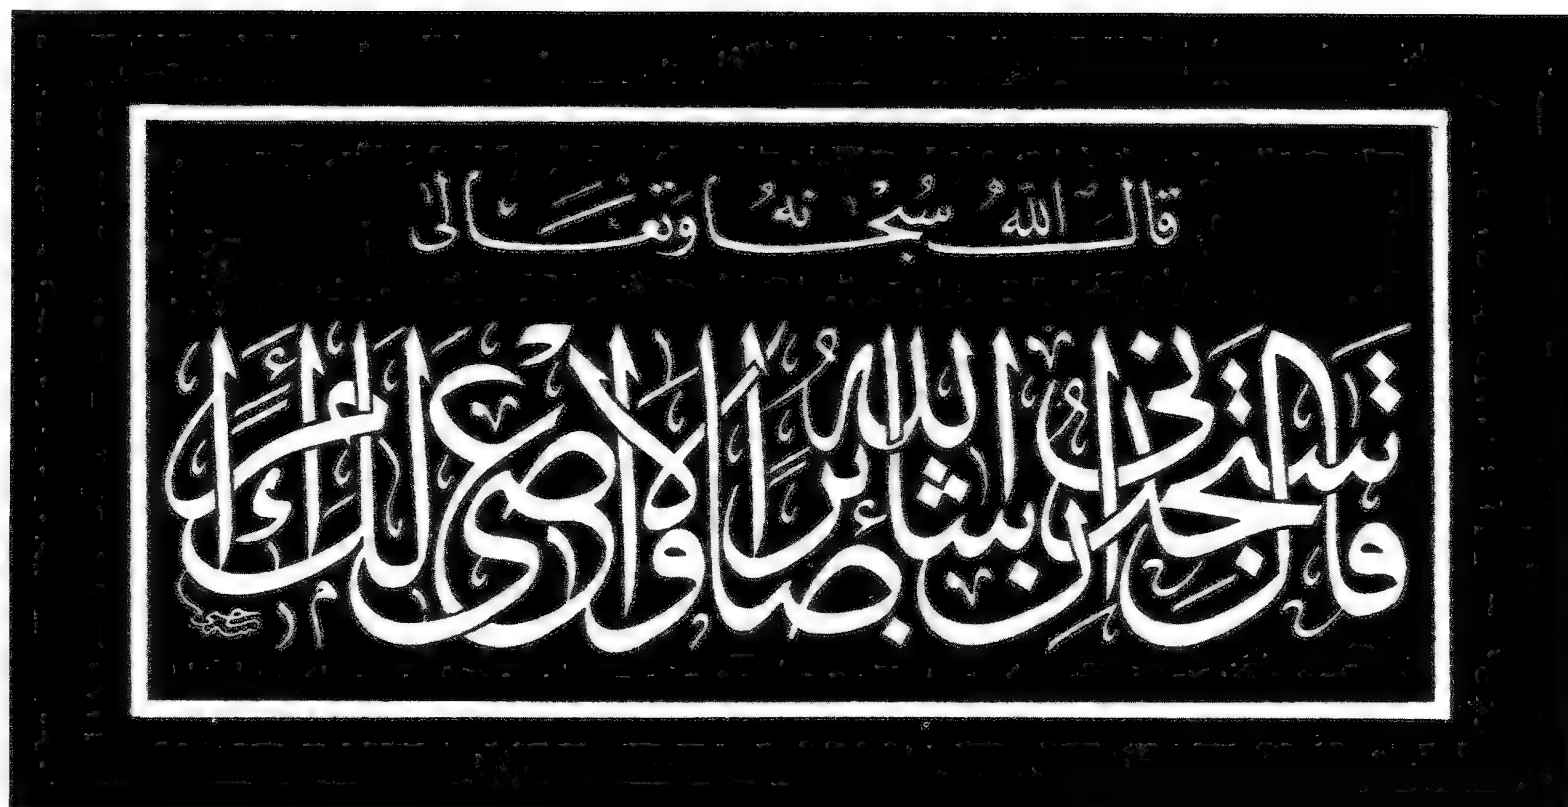 قالَ اللّٰهُ سُبْحانهُ وَتعالىٰ
قال ستجدنى إن شاء اللّٰهُ صابرًا ولا أعصى لك أمرًا